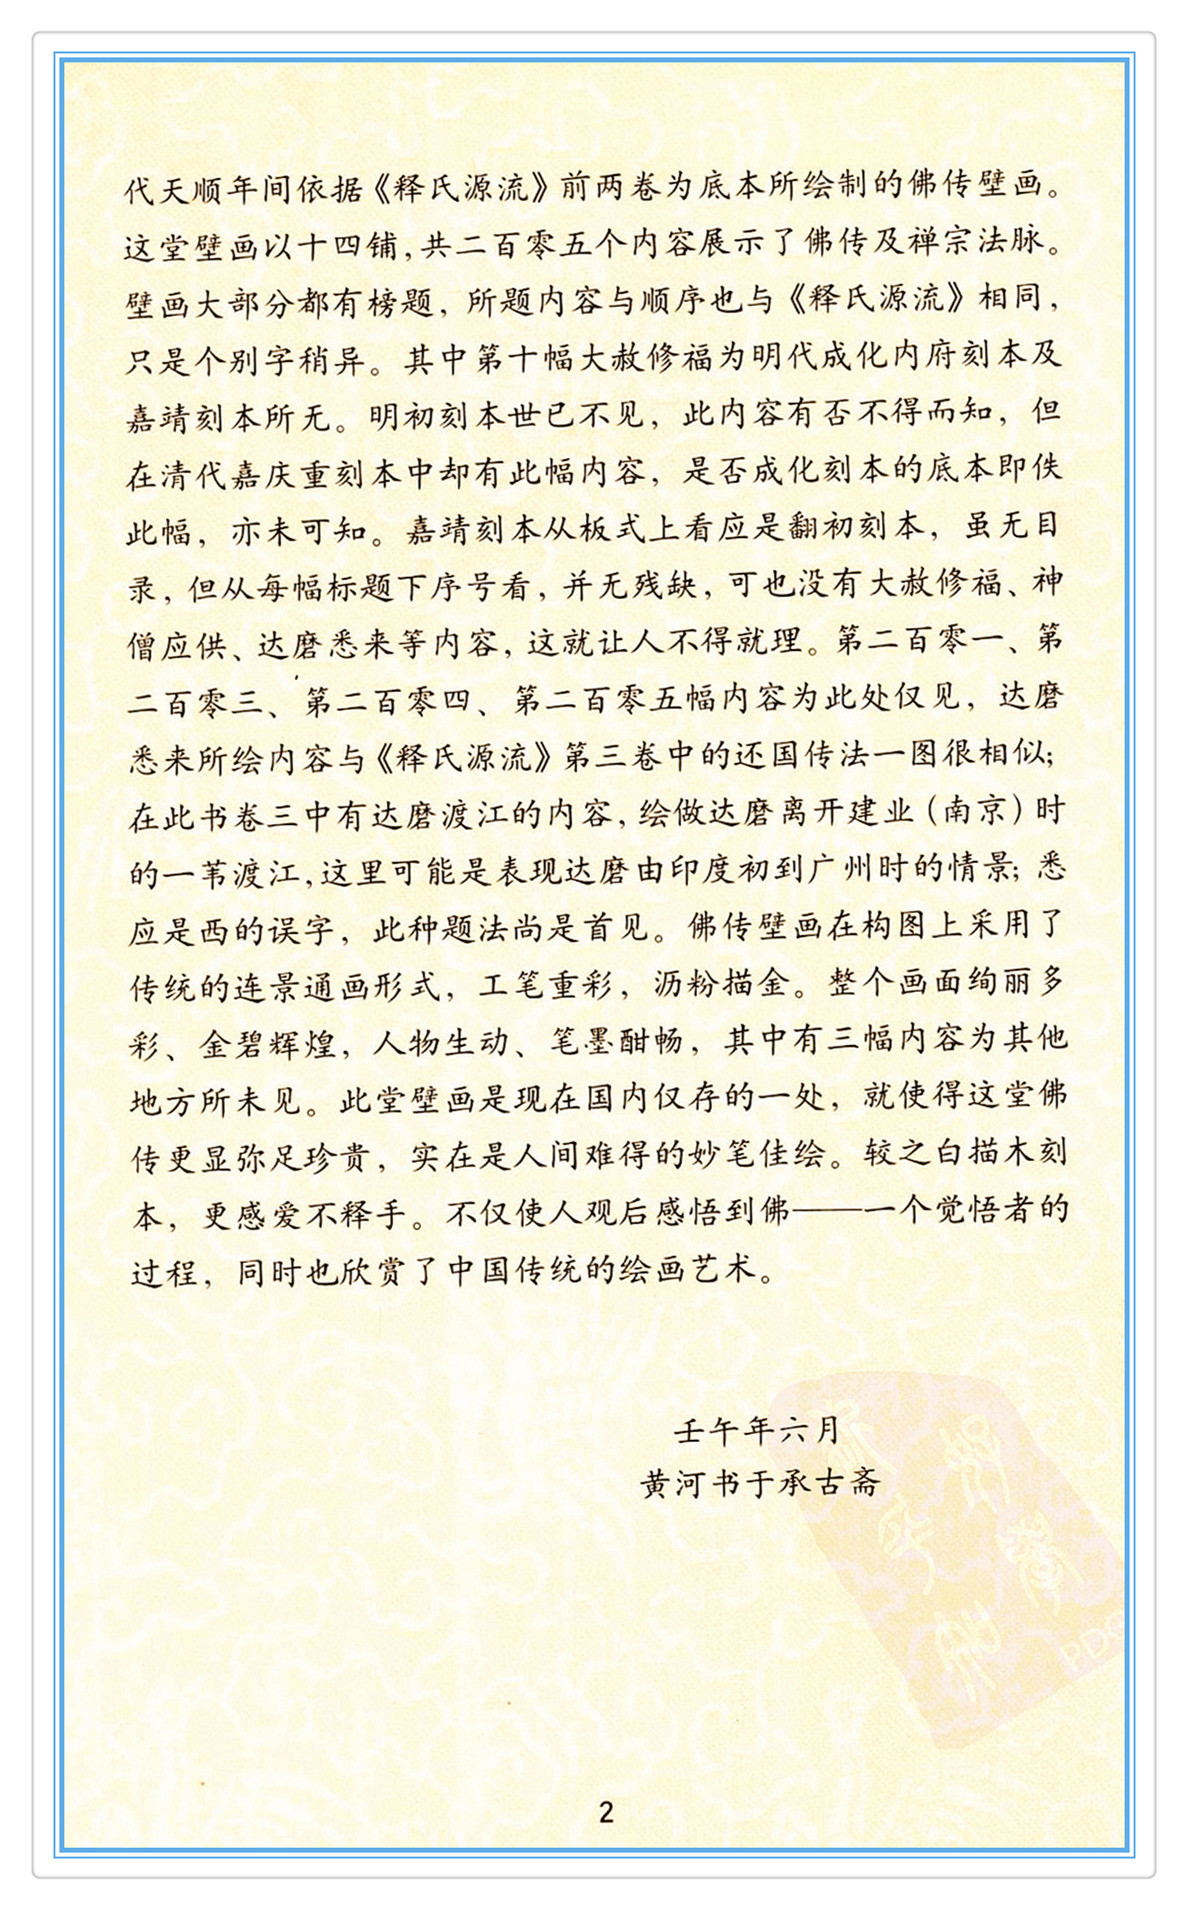 代天顺年间依据《释氏源流》前两卷为底本所绘制的佛传壁画。
这堂壁画以十四铺，共二百零五个内容展示了佛传及禅宗法脉。
壁画大部分都有榜题，所题内容与顺序也与《释氏源流》相同，
只是个别字稍异。其中第十幅大赦修福为明代成化内府刻本及
嘉靖刻本所无。明初刻本世已不见，此内容有否不得而知，但
在清代嘉庆重刻本中却有此幅内容，是否成化刻本的底本即佚
此幅，亦未可知。嘉靖刻本从板式上看应是翻初刻本，虽无目
录，但从每幅标题下序号看，并无残缺，可也没有大赦修福、神
僧应供、达磨悉来等内容，这就让人不得就理。第二百零一、第
二百零三、第二百零四、第二百零五幅内容为此处仅见，达磨
悉来所绘内容与《释氏源流》第三卷中的还国传法一图很相似；
在此书卷三中有达磨渡江的内容，绘做达磨离开建业（南京）时
的一苇渡江，这里可能是表现达磨由印度初到广州时的情景；悉
应是西的误字，此种题法尚是首见。佛传壁画在构图上采用了
传统的连景通画形式，工笔重彩，沥粉描金。整个画面绚丽多
彩、金碧辉煌，人物生动、笔墨酣畅，其中有三幅内容为其他
地方所未见。此堂壁画是现在国内仅存的一处，就使得这堂佛
传更显弥足珍贵，实在是人间难得的妙笔佳绘。较之白描木刻
本，更感爱不释手。不仅使人观后感悟到佛——一个觉悟者的
过程，同时也欣赏了中国传统的绘画艺术。
壬午年六月
黄河书于承古斋
PDG
2